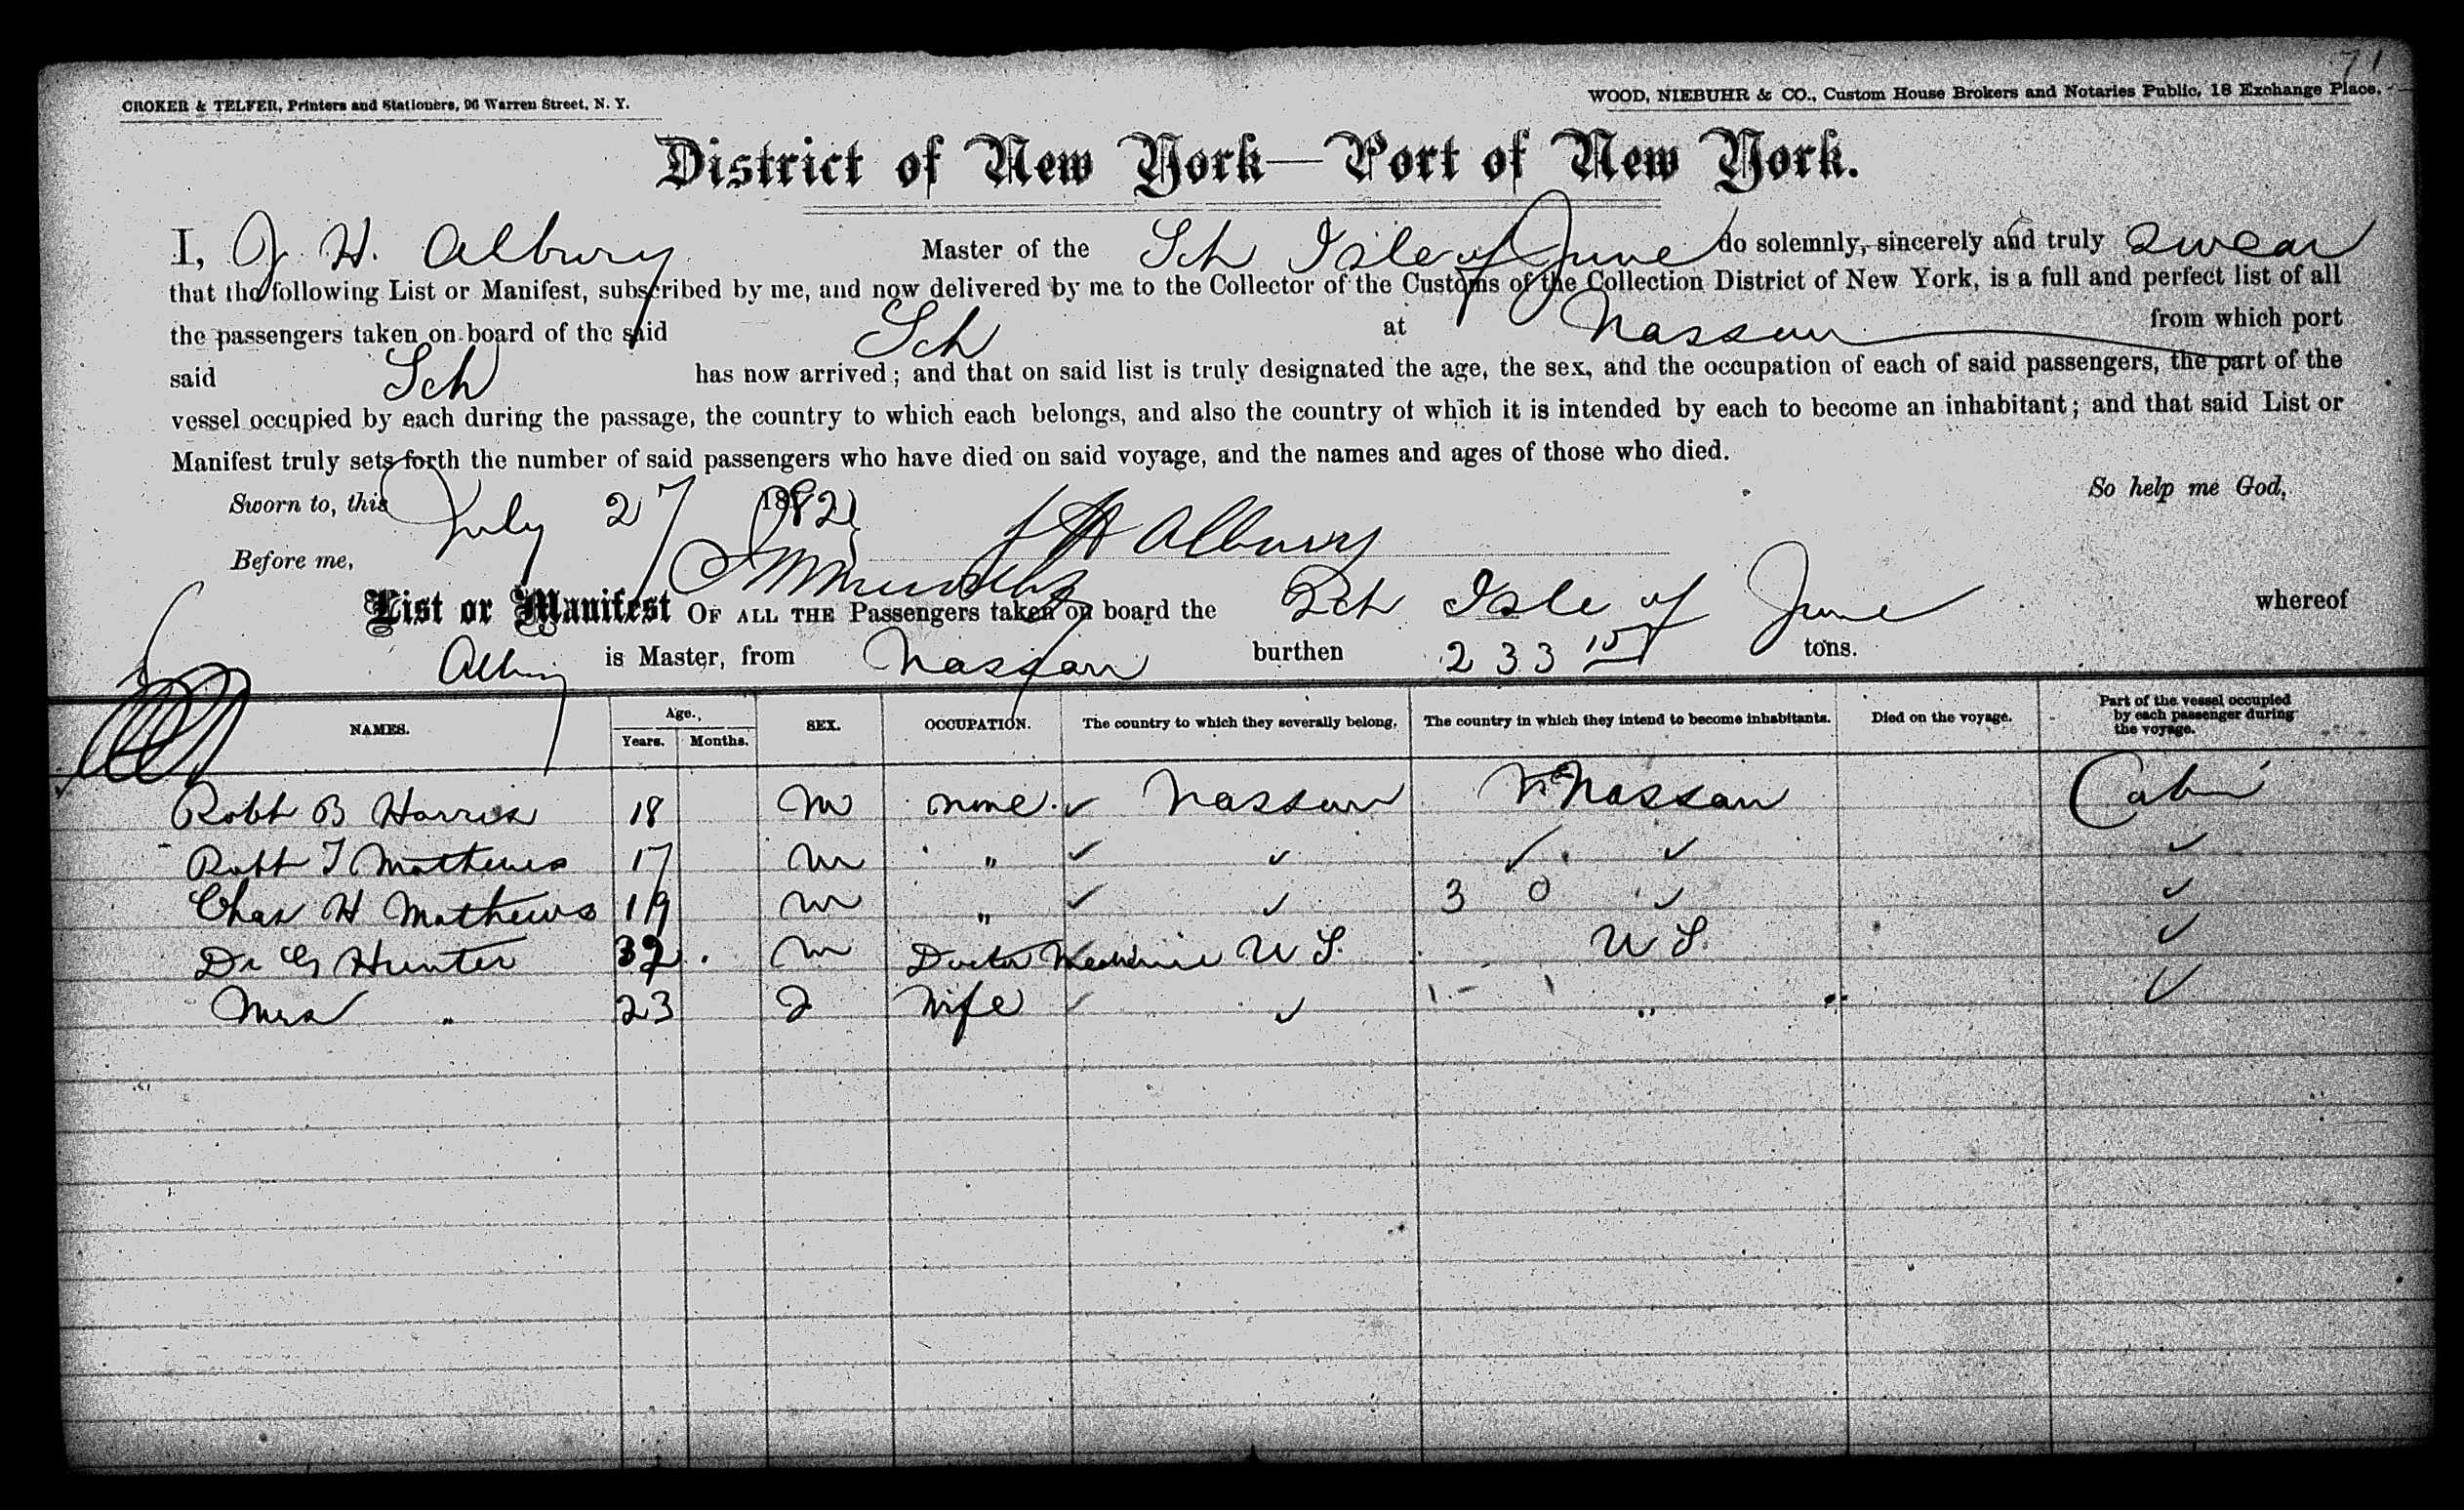 71
CROKER & TELFER, Printers and Stationers, 96 Warren Street, N. Y.
WOOD, NIEBUHR & CO., Custom House Brokers and Notaries Public, 18 Exchange Place.
District of New York—Port of New York.
I, J. H. Albury Master of the Sch Isle of June do solemnly, sincerely and truly swear
that the following List or Manifest, subscribed by me, and now delivered by me to the Collector of the Customs of the Collection District of New York, is a full and perfect list of all
the passengers taken on board of the said Sch at Nassau from which port
said Sch has now arrived; and that on said list is truly designated the age, the sex, and the occupation of each of said passengers, the part of the
vessel occupied by each during the passage, the country to which each belongs, and also the country of which it is intended by each to become an inhabitant; and that said List or
Manifest truly sets forth the number of said passengers who have died on said voyage, and the names and ages of those who died.
Sworn to, this July 27 1882 So help me God,
Before me, J H Albury
List or Manifest OF ALL THE Passengers taken on board the Sch Isle of June whereof
Albury is Master, from Nassau burthen 233 tons.
NAMES. Age., Years. Months. SEX. OCCUPATION. The country to which they severally belong. The country in which they intend to become inhabitants. Died on the voyage. Part of the vessel occupied by each passenger during the voyage.
Robt B Harris 18 M none ✓ Nassau Nassau Cabin
Robt T Mathews 17 M " ✓ ✓ ✓ ✓ ✓
Chas H Mathews 19 M " ✓ ✓ 3 0 ✓ ✓
Dr G Hunter 32 M Doctor Medicine U S. U S. ✓
Mrs " 23 F Wife ✓ ✓ " ✓